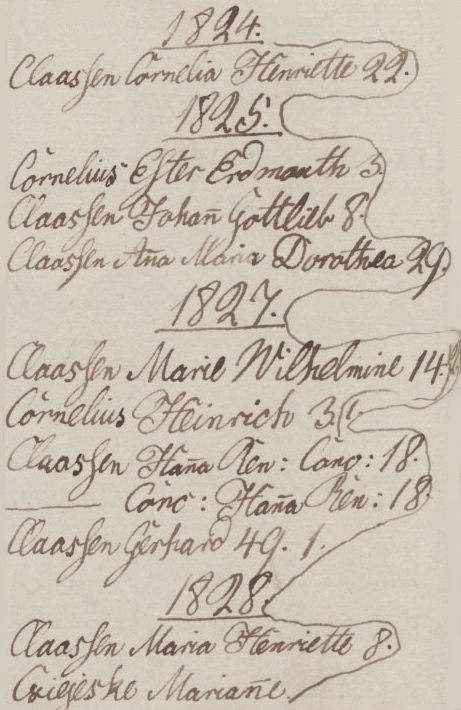 1824.
Claassen Cornelia Henriette 22.
1825.
Cornelius Ester Erdmouth 3.
Claassen Johan̄ Gottlieb 8.
Claassen An̄a Maria Dorothea 29.
1827.
Claassen Marie Wilhelmine 14.
Cornelius Heinrich 3.
Claassen Han̄a Ren: Caro: 18.
—— Caro: Han̄a Ren: 18.
Claassen Gerhard 49. 1.
1828.
Claassen Maria Henriette 8.
Marian̄e.